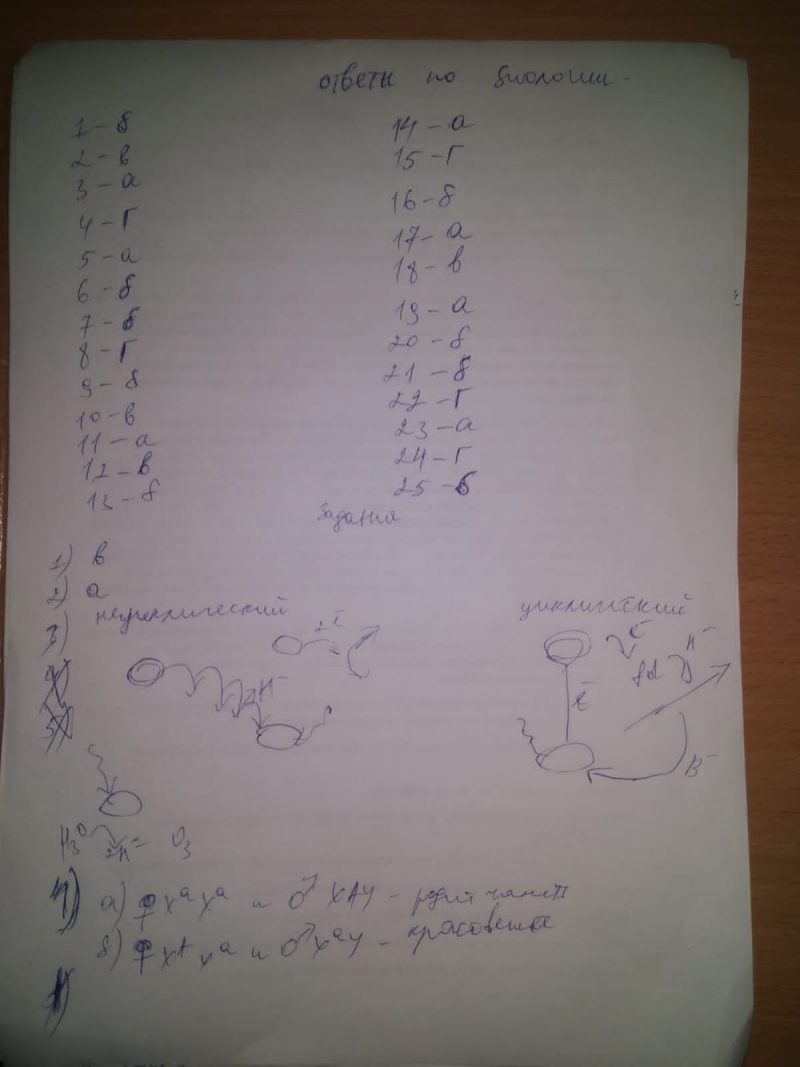 ответы по биологии.
1 - б
2 - в
3 - а
4 - г
5 - а
6 - б
7 - б
8 - г
9 - б
10 - в
11 - а
12 - в
13 - б
14 - а
15 - г
16 - б
17 - а
18 - в
19 - а
20 - б
21 - б
22 - г
23 - а
24 - г
25 - б
Задания
1) в
2) а
3) нециклический
циклический
4) а) ♀ XᵃXᵃ и ♂ XAY -
б) ♀ XAXᵃ и ♂ XᵃY -